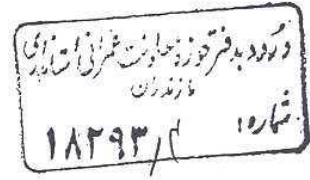 ورود بدفتر حوزه معاونت عمرانی استانداری
مازندران
شماره:
۱۸۲۹۳/م